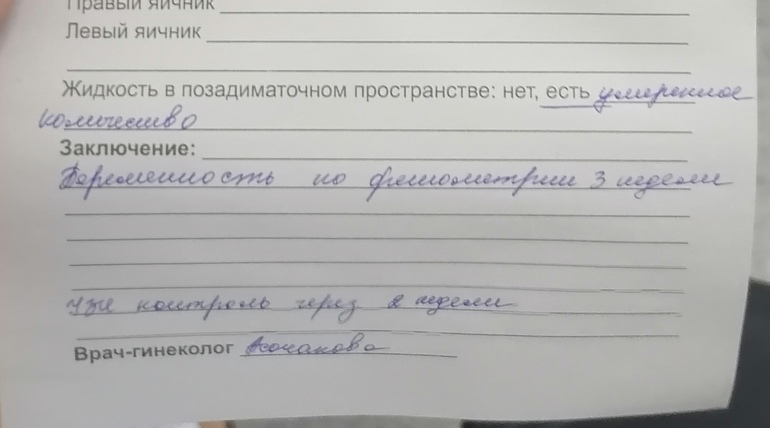 Правый яичник
Левый яичник
Жидкость в позадиматочном пространстве: нет, есть умеренное
количество
Заключение:
Беременность по фетометрии 3 недели
узи контроль через 2 недели
Врач-гинеколог